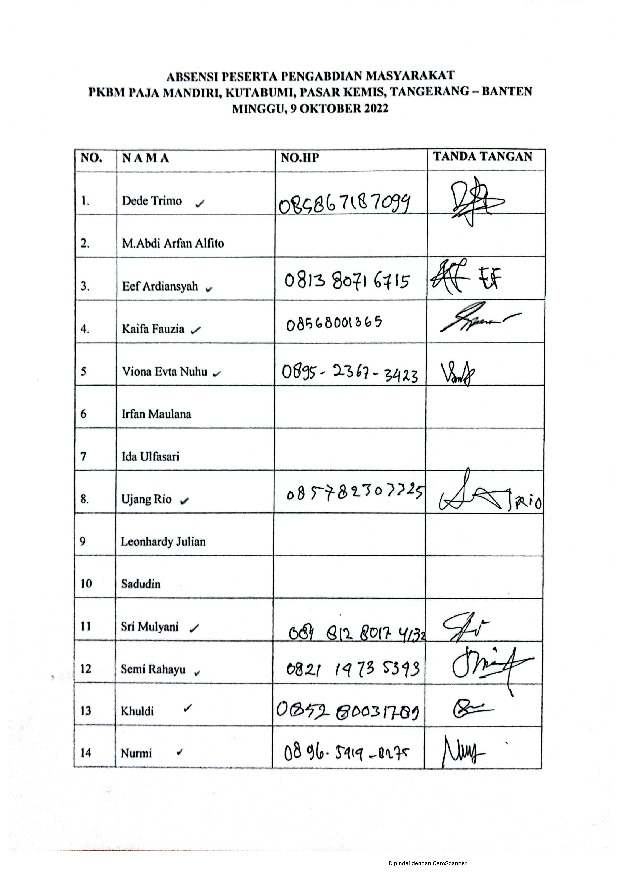 ABSENSI PESERTA PENGABDIAN MASYARAKAT
PKBM PAJA MANDIRI, KUTABUMI, PASAR KEMIS, TANGERANG – BANTEN
MINGGU, 9 OKTOBER 2022
NO. N A M A NO.HP TANDA TANGAN
1. Dede Trimo ✓ 085867187099
2. M.Abdi Arfan Alfito
3. Eef Ardiansyah ✓ 0813 8071 6715 EF
4. Kaifa Fauzia ✓ 08568001365
5 Viona Evta Nuhu ✓ 0895-2367-3423
6 Irfan Maulana
7 Ida Ulfasari
8. Ujang Rio ✓ RIO
9 Leonhardy Julian
10 Sadudin
11 Sri Mulyani ✓ 812 8017 4132
12 Semi Rahayu ✓ 0821 1973 5393
13 Khuldi ✓
14 Nurmi ✓ 0896-5919-8275
Dipindai dengan CamScanner